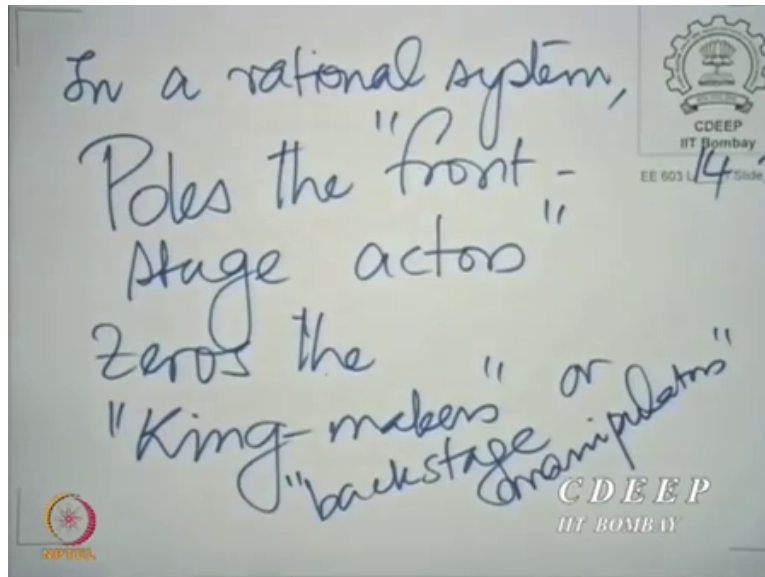 In a rational system,
Poles the "front-
stage actors"
Zeros the
"King-makers" or
"backstage manipulators"
CDEEP
IIT Bombay
EE 603 L 14 Slide
CDEEP
IIT BOMBAY
NPTEL